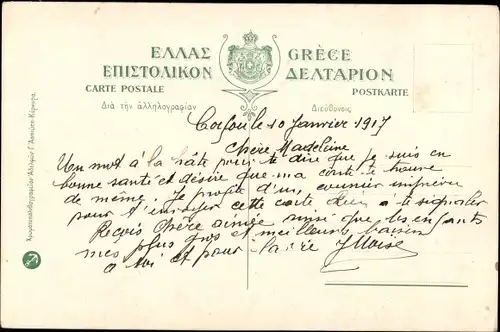 ΕΛΛΑΣ GRÈCE
ΕΠΙΣΤΟΛΙΚΟΝ ΔΕΛΤΑΡΙΟΝ
CARTE POSTALE POSTKARTE
Διὰ τὴν ἀλληλογραφίαν Διεύθυνσις
Corfou le 10 Janvier 1917
Chère Madeleine
Un mot à la hâte pour te dire que je suis en
bonne santé et désire que ma carte te trouve
de même. Je profite d'un courrier imprévu
pour t'envoyer cette carte
Reçois chère aimée ainsi que les enfants
mes plus gros et meilleurs baisers
à toi et pour la vie